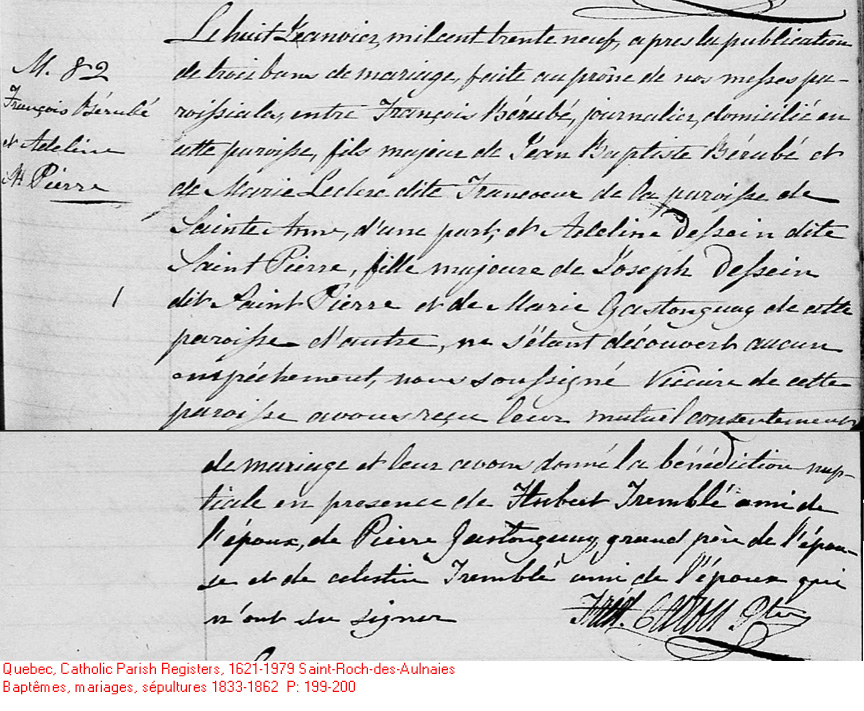 M. 82
François Bérubé
et Adeline
St Pierre
1
Le huit Jeanvier, mil cent trente neuf, apres la publication
de trois bans de mariage, faite au prône de nos messes pa-
roissiales, entre François Bérubé, journalier, domicilié en
cette paroisse, fils majeur de Jean Baptiste Bérubé et
de Marie Leclerc dite Francoeur de la paroisse de
Sainte Anne, d'une part, et Adeline Dessein dite
Saint Pierre, fille majeure de Joseph Dessein
dit Saint Pierre et de Marie Gastonguay de cette
paroisse d'autre, ne s'étant découvert aucun
empéchement, nous soussigné Vicaire de cette
paroisse avons reçu leur mutuel consentement
de mariage et leur avons donné la bénédiction nup-
tiale en presence de Hubert Tremblé ami de
l'époux, de Pierre Gastonguay, grand père de l'épou-
se et de celestin Tremblé ami de l'époux qui
n'ont su signer
Caron Ptre
Quebec, Catholic Parish Registers, 1621-1979 Saint-Roch-des-Aulnaies
Baptêmes, mariages, sépultures 1833-1862 P: 199-200